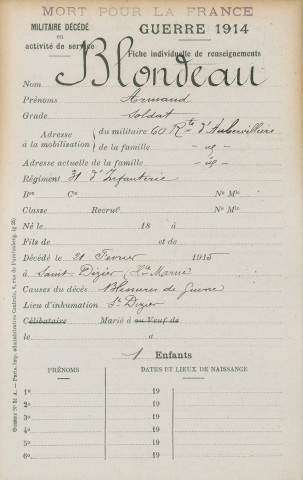 MORT POUR LA FRANCE
MILITAIRE DÉCÉDÉ
en
activité de service
GUERRE 1914
Fiche individuelle de renseignements
Nom Blondeau
Prénoms Armand
Grade Soldat
Adresse à la mobilisation { du militaire 60 Rte d'Aubervilliers
de la famille - ug -
Adresse actuelle de la famille - ug -
Régiment 31 d'Infanterie
Bon Cie No Mle
Classe Recrut No Mle
Né le 18 à
Fils de et de
Décédé le 21 Fevrier 1915
à Saint-Dizier (Hte Marne)
Causes du décès Blessures de Guerre
Lieu d'inhumation St Dizier
Célibataire Marié à ou Veuf de
le à
1 Enfants
PRÉNOMS DATES ET LIEUX DE NAISSANCE
1o 19
2o 19
3o 19
4o 19
5o 19
6o 19